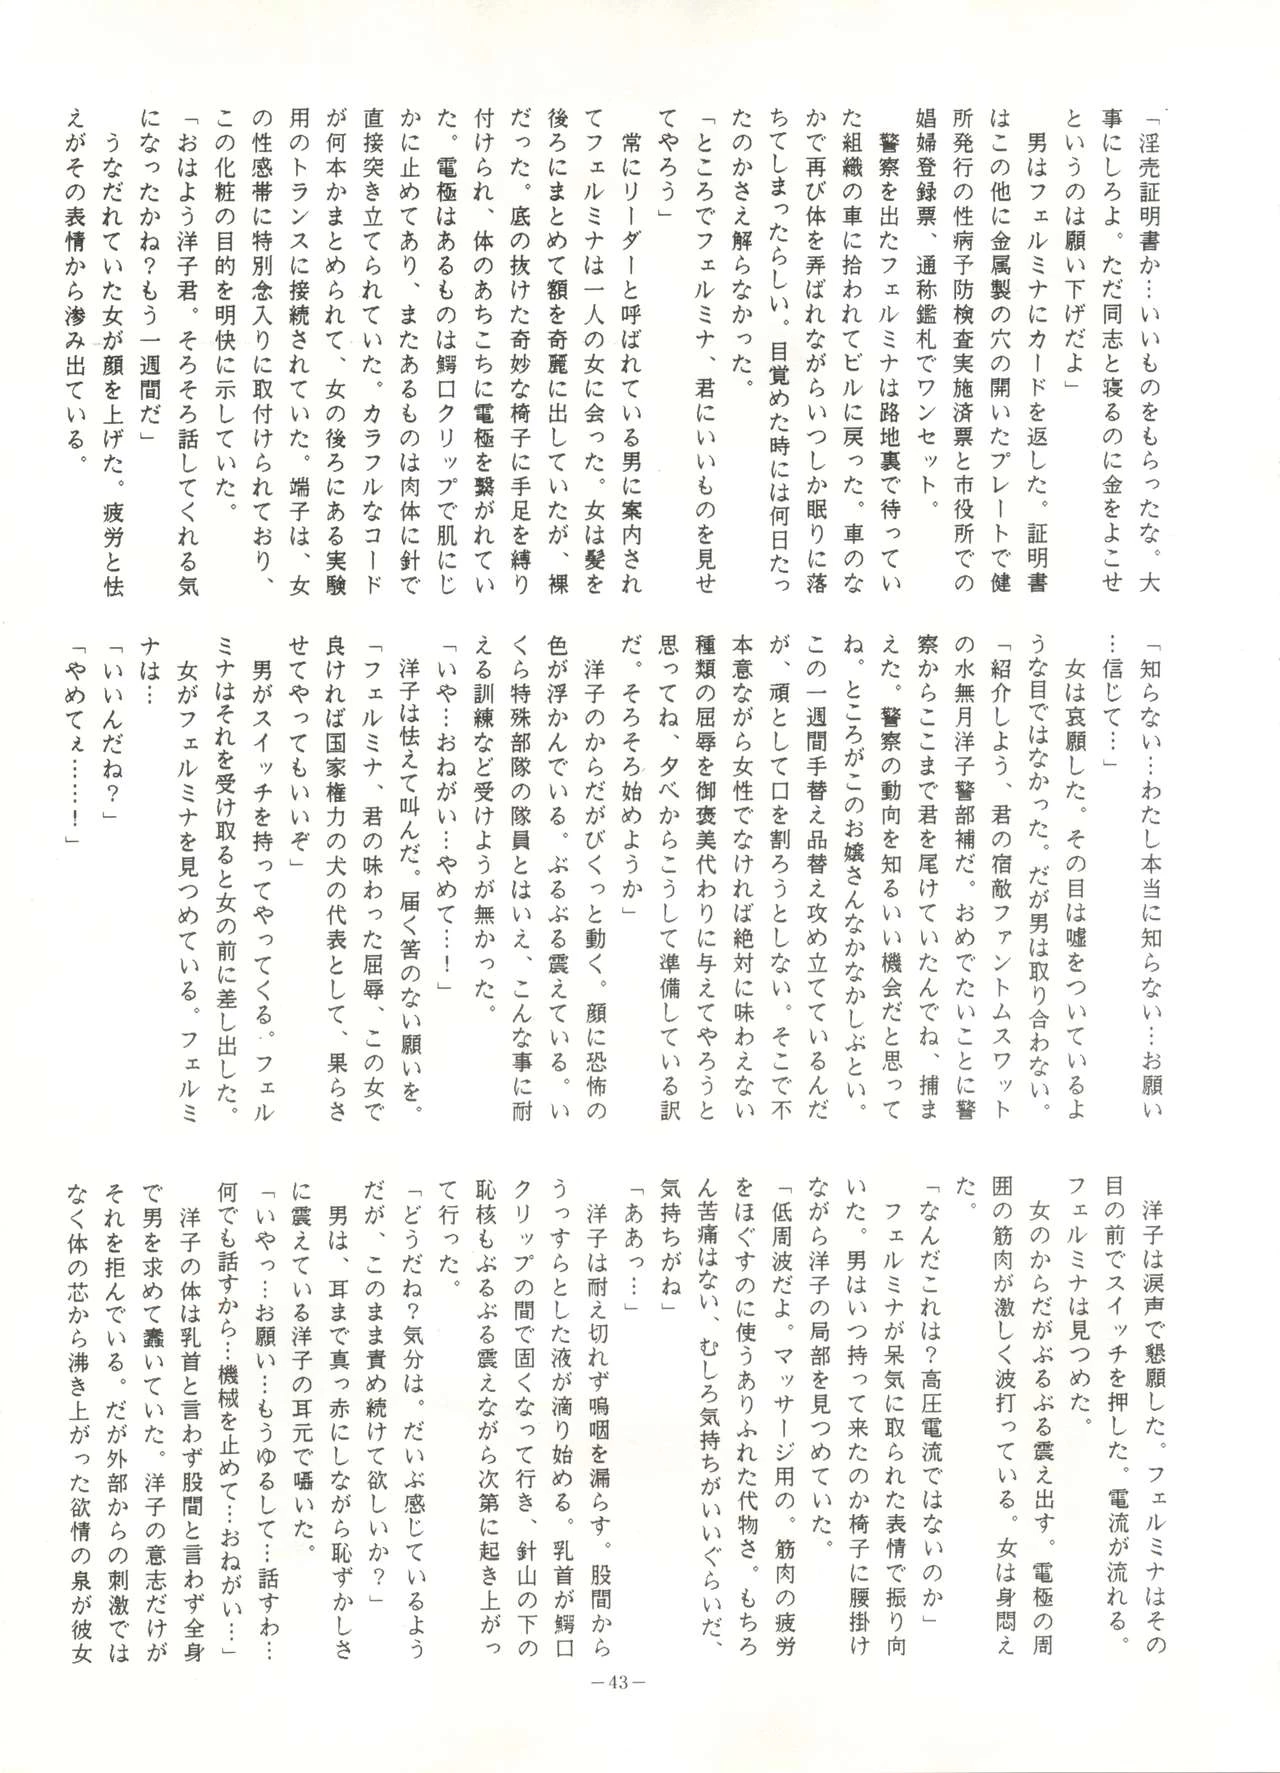 「淫売証明書か…いいものをもらったな。大
事にしろよ。ただ同志と寝るのに金をよこせ
というのは願い下げだよ」
　男はフェルミナにカードを返した。証明書
はこの他に金属製の穴の開いたプレートで健
所発行の性病予防検査実施済票と市役所での
娼婦登録票、通称鑑札でワンセット。
　警察を出たフェルミナは路地裏で待ってい
た組織の車に拾われてビルに戻った。車のな
かで再び体を弄ばれながらいつしか眠りに落
ちてしまったらしい。目覚めた時には何日たっ
たのかさえ解らなかった。
「ところでフェルミナ、君にいいものを見せ
てやろう」
　常にリーダーと呼ばれている男に案内され
てフェルミナは一人の女に会った。女は髪を
後ろにまとめて額を奇麗に出していたが、裸
だった。底の抜けた奇妙な椅子に手足を縛り
付けられ、体のあちこちに電極を繋がれてい
た。電極はあるものは鰐口クリップで肌にじ
かに止めてあり、またあるものは肉体に針で
直接突き立てられていた。カラフルなコード
が何本かまとめられて、女の後ろにある実験
用のトランスに接続されていた。端子は、女
の性感帯に特別念入りに取付けられており、
この化粧の目的を明快に示していた。
「おはよう洋子君。そろそろ話してくれる気
になったかね？もう一週間だ」
　うなだれていた女が顔を上げた。疲労と怯
えがその表情から滲み出ている。
「知らない…わたし本当に知らない…お願い
…信じて…」
　女は哀願した。その目は嘘をついているよ
うな目ではなかった。だが男は取り合わない。
「紹介しよう、君の宿敵ファントムスワット
の水無月洋子警部補だ。おめでたいことに警
察からここまで君を尾けていたんでね、捕ま
えた。警察の動向を知るいい機会だと思って
ね。ところがこのお嬢さんなかなかしぶとい。
この一週間手替え品替え攻め立てているんだ
が、頑として口を割ろうとしない。そこで不
本意ながら女性でなければ絶対に味わえない
種類の屈辱を御褒美代わりに与えてやろうと
思ってね、夕べからこうして準備している訳
だ。そろそろ始めようか」
　洋子のからだがびくっと動く。顔に恐怖の
色が浮かんでいる。ぶるぶる震えている。い
くら特殊部隊の隊員とはいえ、こんな事に耐
える訓練など受けようが無かった。
「いや…おねがい…やめて…！」
　洋子は怯えて叫んだ。届く筈のない願いを。
「フェルミナ、君の味わった屈辱、この女で
良ければ国家権力の犬の代表として、果らさ
せてやってもいいぞ」
　男がスイッチを持ってやってくる。フェル
ミナはそれを受け取ると女の前に差し出した。
　女がフェルミナを見つめている。フェルミ
ナは…
「いいんだね？」
「やめてぇ……！」
　洋子は涙声で懇願した。フェルミナはその
目の前でスイッチを押した。電流が流れる。
フェルミナは見つめた。
　女のからだがぶるぶる震え出す。電極の周
囲の筋肉が激しく波打っている。女は身悶え
た。
「なんだこれは？高圧電流ではないのか」
　フェルミナが呆気に取られた表情で振り向
いた。男はいつ持って来たのか椅子に腰掛け
ながら洋子の局部を見つめていた。
「低周波だよ。マッサージ用の。筋肉の疲労
をほぐすのに使うありふれた代物さ。もちろ
ん苦痛はない、むしろ気持ちがいいぐらいだ、
気持ちがね」
「ああっ…」
　洋子は耐え切れず嗚咽を漏らす。股間から
うっすらとした液が滴り始める。乳首が鰐口
クリップの間で固くなって行き、針山の下の
恥核もぶるぶる震えながら次第に起き上がっ
て行った。
「どうだね？気分は。だいぶ感じているよう
だが、このまま責め続けて欲しいか？」
　男は、耳まで真っ赤にしながら恥ずかしさ
に震えている洋子の耳元で囁いた。
「いやっ…お願い…もうゆるして…話すわ…
何でも話すから…機械を止めて…おねがい…」
　洋子の体は乳首と言わず股間と言わず全身
で男を求めて蠢いていた。洋子の意志だけが
それを拒んでいる。だが外部からの刺激では
なく体の芯から沸き上がった欲情の泉が彼女
－43－